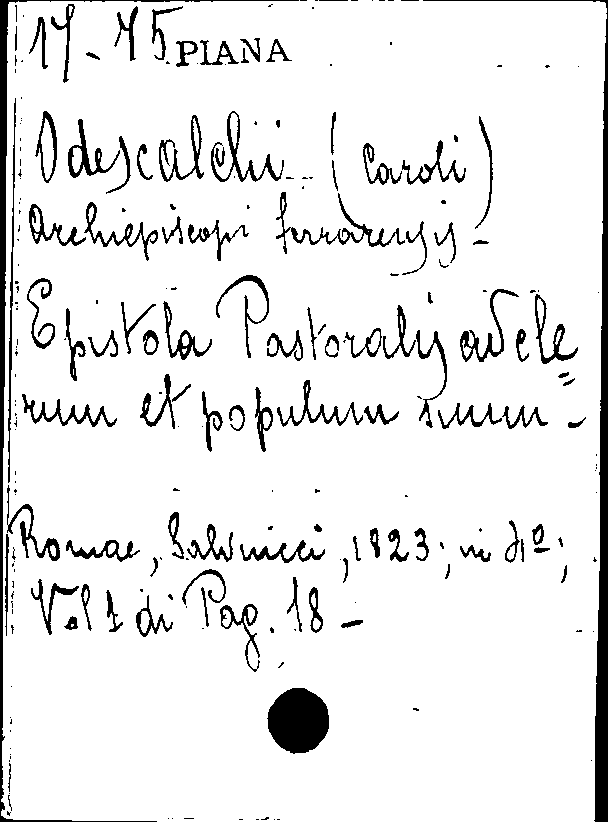 17-75 PIANA
Odescalchii (Caroli)
Archiepiscopi ferrarensis -
Epistola Pastoralis ad cle=
rum et populum suum -
Romae, Salviucci, 1823; in 4º;
Vol 1 di Pag. 18 -